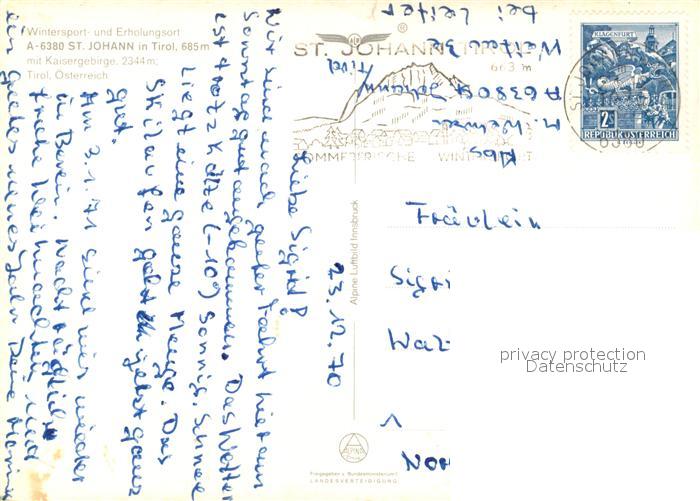 Wintersport- und Erholungsort
A-6380 ST. JOHANN in Tirol, 685 m
mit Kaisergebirge, 2344 m;
Tirol, Österreich
ST. JOHANN TIROL
663 m
SOMMERFRISCHE WINTERSPORT
KLAGENFURT
2 S
REPUBLIK ÖSTERREICH
6380
Abs
A 6380 St Johann
Tirol
bei Leiter
23.12.70
Liebe Sigrid!
Wir sind nach guter Fahrt hier am
Sonntag gut angekommen. Das Wetter
ist trotz Kälte (-10°) sonnig. Schnee
liegt eine ganze Menge. Das
Skilaufen geht jetzt ganz
gut.
Am 3.1.71 sind wir wieder
in Berlin. Nachträglich
frohe Weihnachten und
ein gutes neues Jahr Deine
Fräulein
Alpine Luftbild Innsbruck
ALPINE
Freigegeben v. Bundesministerium f.
LANDESVERTEIDIGUNG
privacy protection
Datenschutz